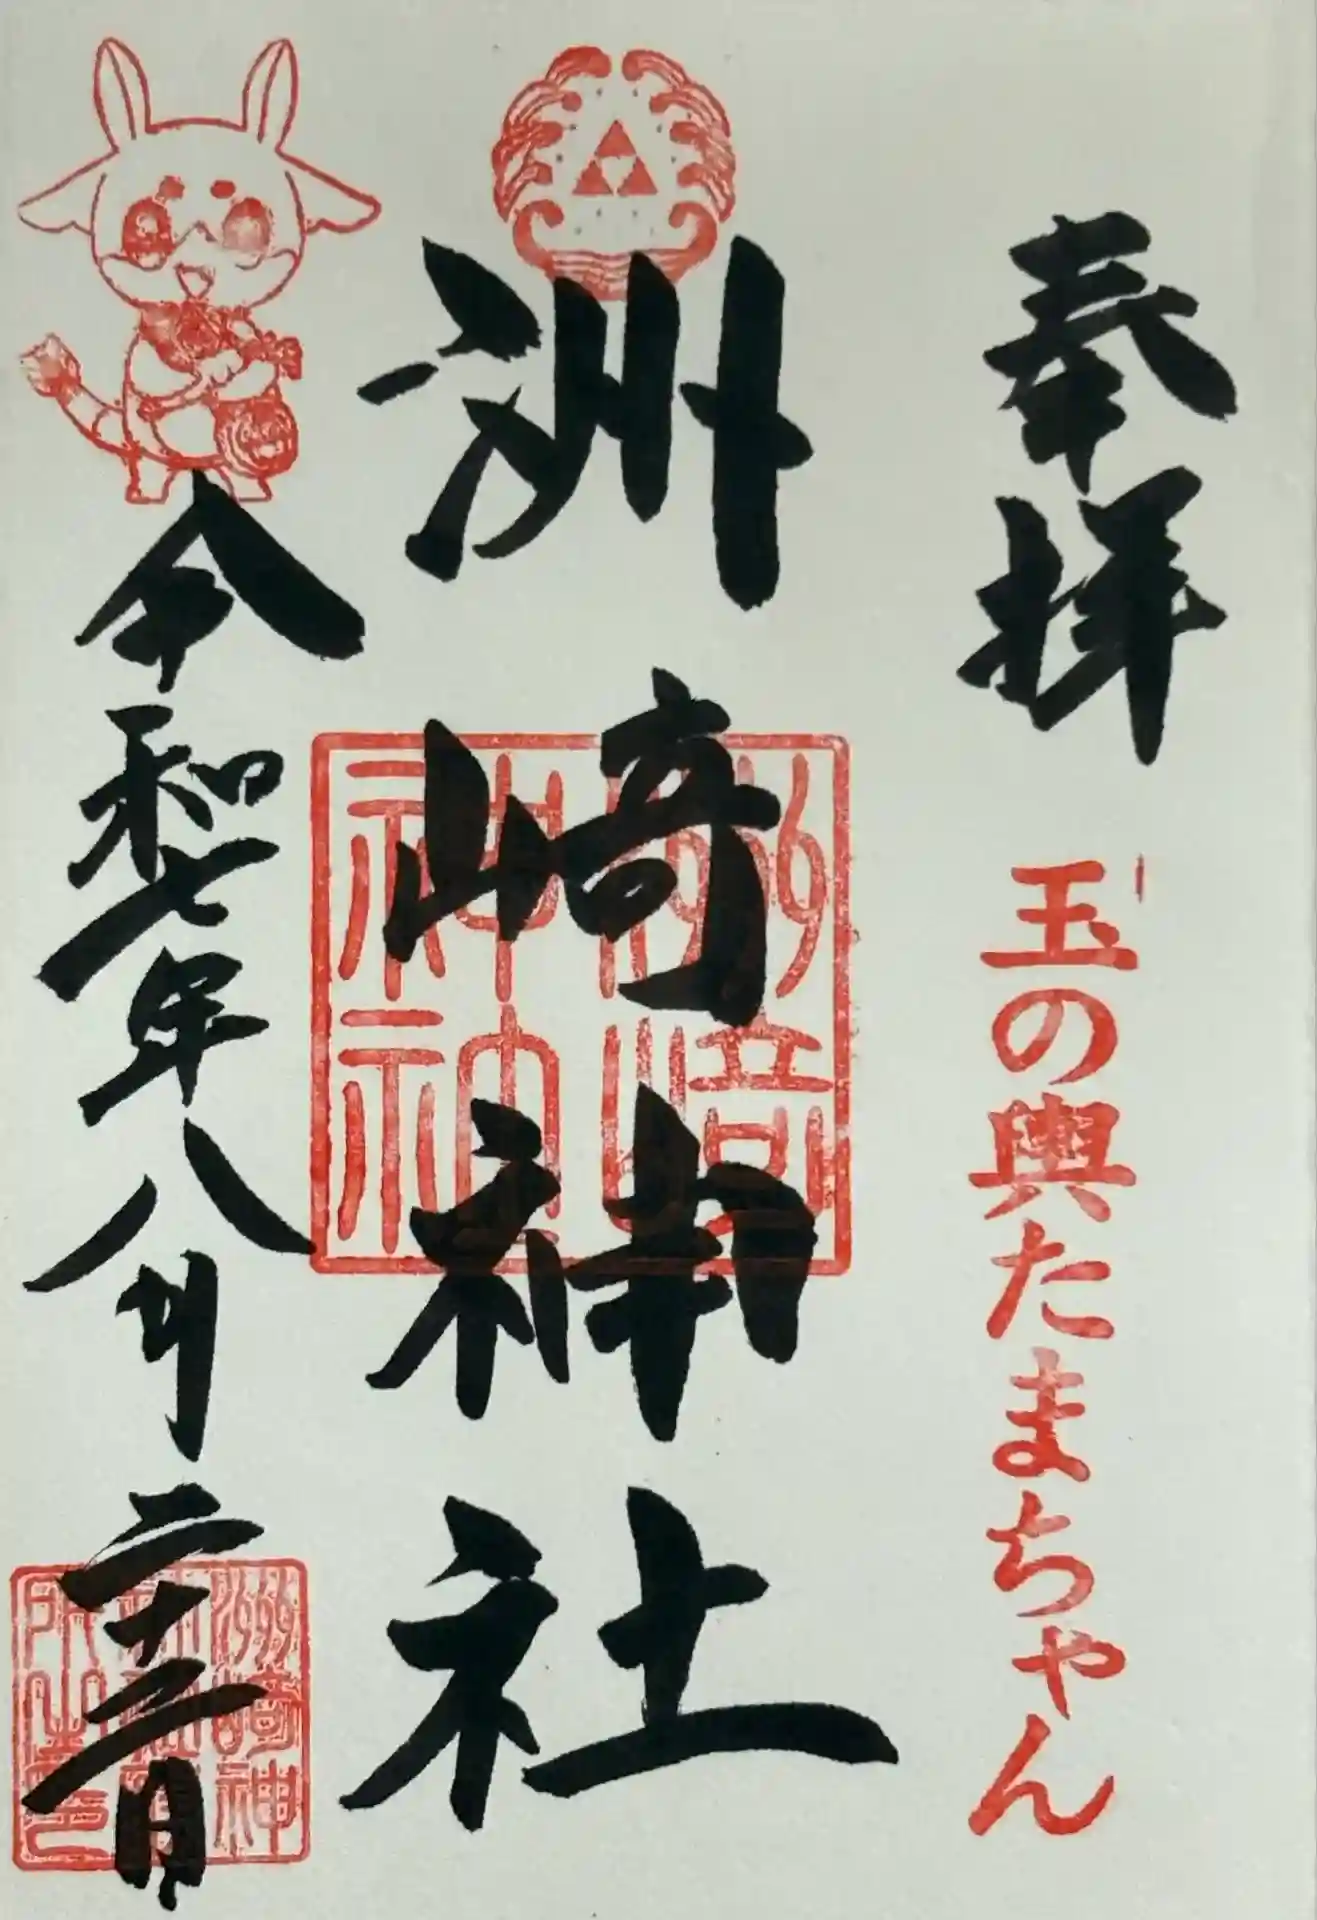 奉拝
玉の輿たまちゃん
洲崎神社
洲崎神社
令和七年八月二十三日
洲崎神